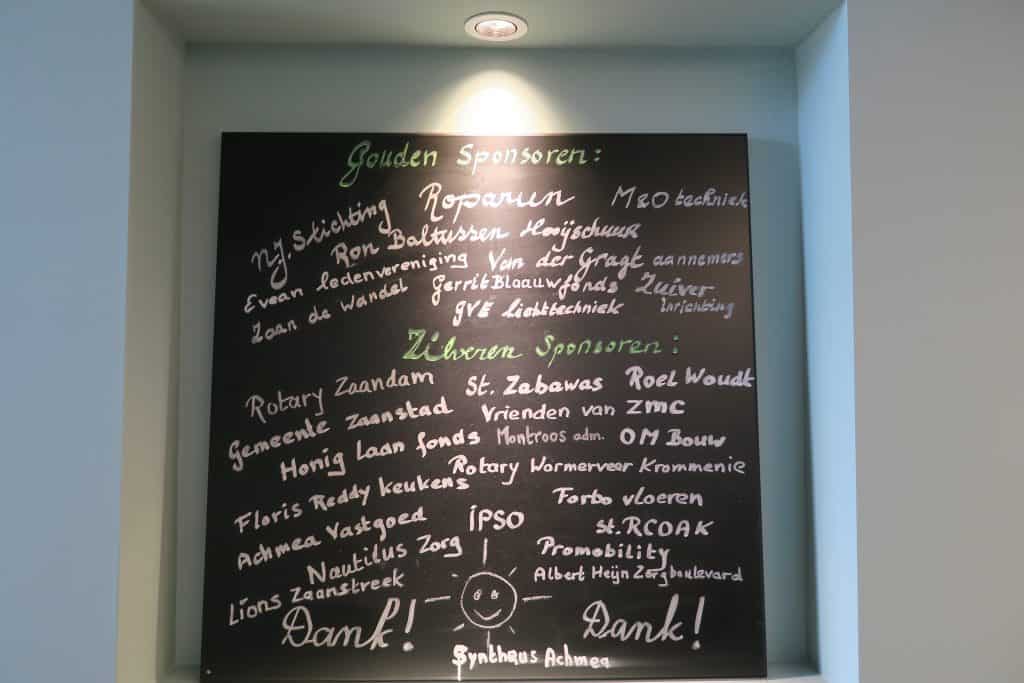 Gouden Sponsoren:
Roparun M&O techniek
N.J. Stichting
Ron Baltussen Hooijschuur
Evean ledenvereniging Van der Gragt aannemers
Zaan de Wandel Gerrit Blaauw fonds Zuiver inrichting
GVE lichttechniek
Zilveren Sponsoren:
Rotary Zaandam St. Zabawas Roel Woudt
Gemeente Zaanstad Vrienden van ZMC
Honig Laan fonds Montroos adm. OM Bouw
Rotary Wormerveer Krommenie
Floris Reddy keukens Forbo vloeren
Achmea Vastgoed IPSO St. RCOAK
Nautilus Zorg Promobility
Lions Zaanstreek Albert Heijn Zorgboulevard
Dank! Dank!
Synthaus Achmea